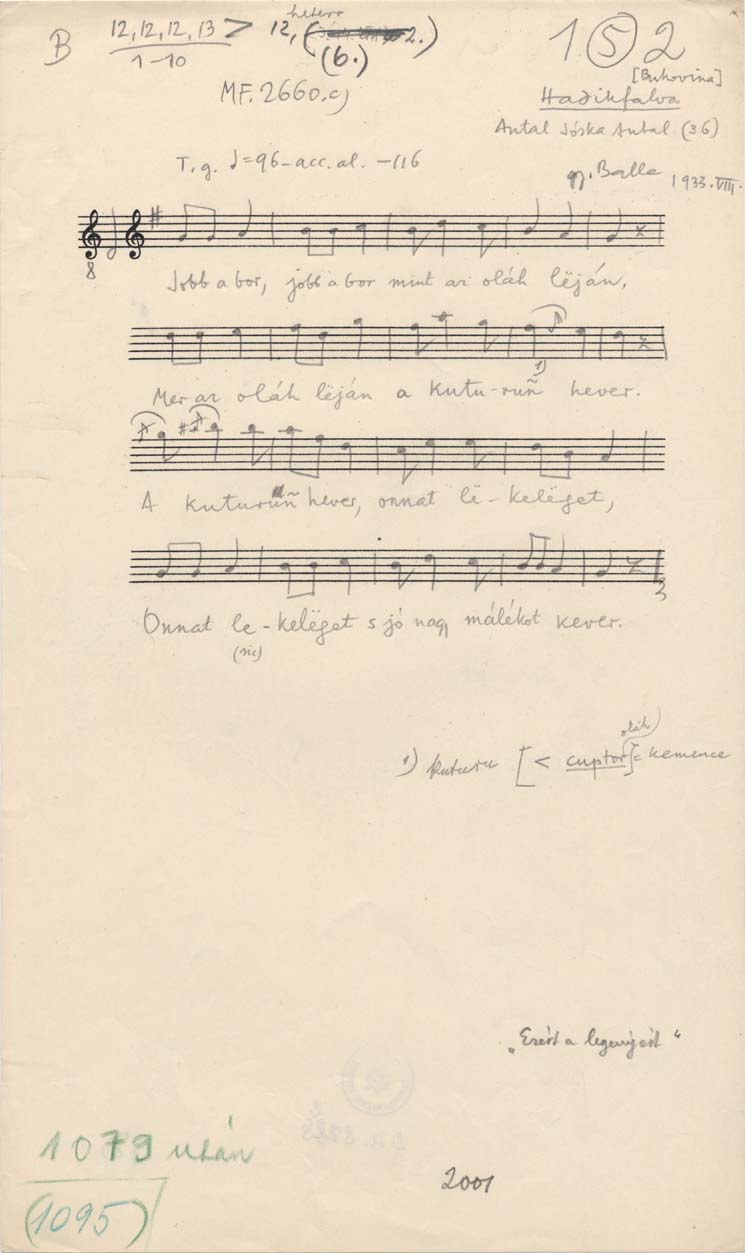 B 12, 12, 12, 13 > 12, heterr ( 2.) 1 5 2
1-10 (6.)
MF. 2660. c)
[Bukovina]
Hadikfalva
Antal Jóska Antal (36)
T. g. ♩=96 - acc. al. - 116
gy. Balla 1933. VIII.
8
Jobb a bor, jobb a bor mint az oláh lëján,
Mer az oláh lëján a kutu-ruñ hever.
1)
A kuturuñ hever, onnat lë-kelëget,
Onnat le-kelëget s jó nagy málékot kever.
(sic)
1) kuturu [< cuptor] = kemence
oláh
"Ezért a legényért"
1079 után
(1095)
2001